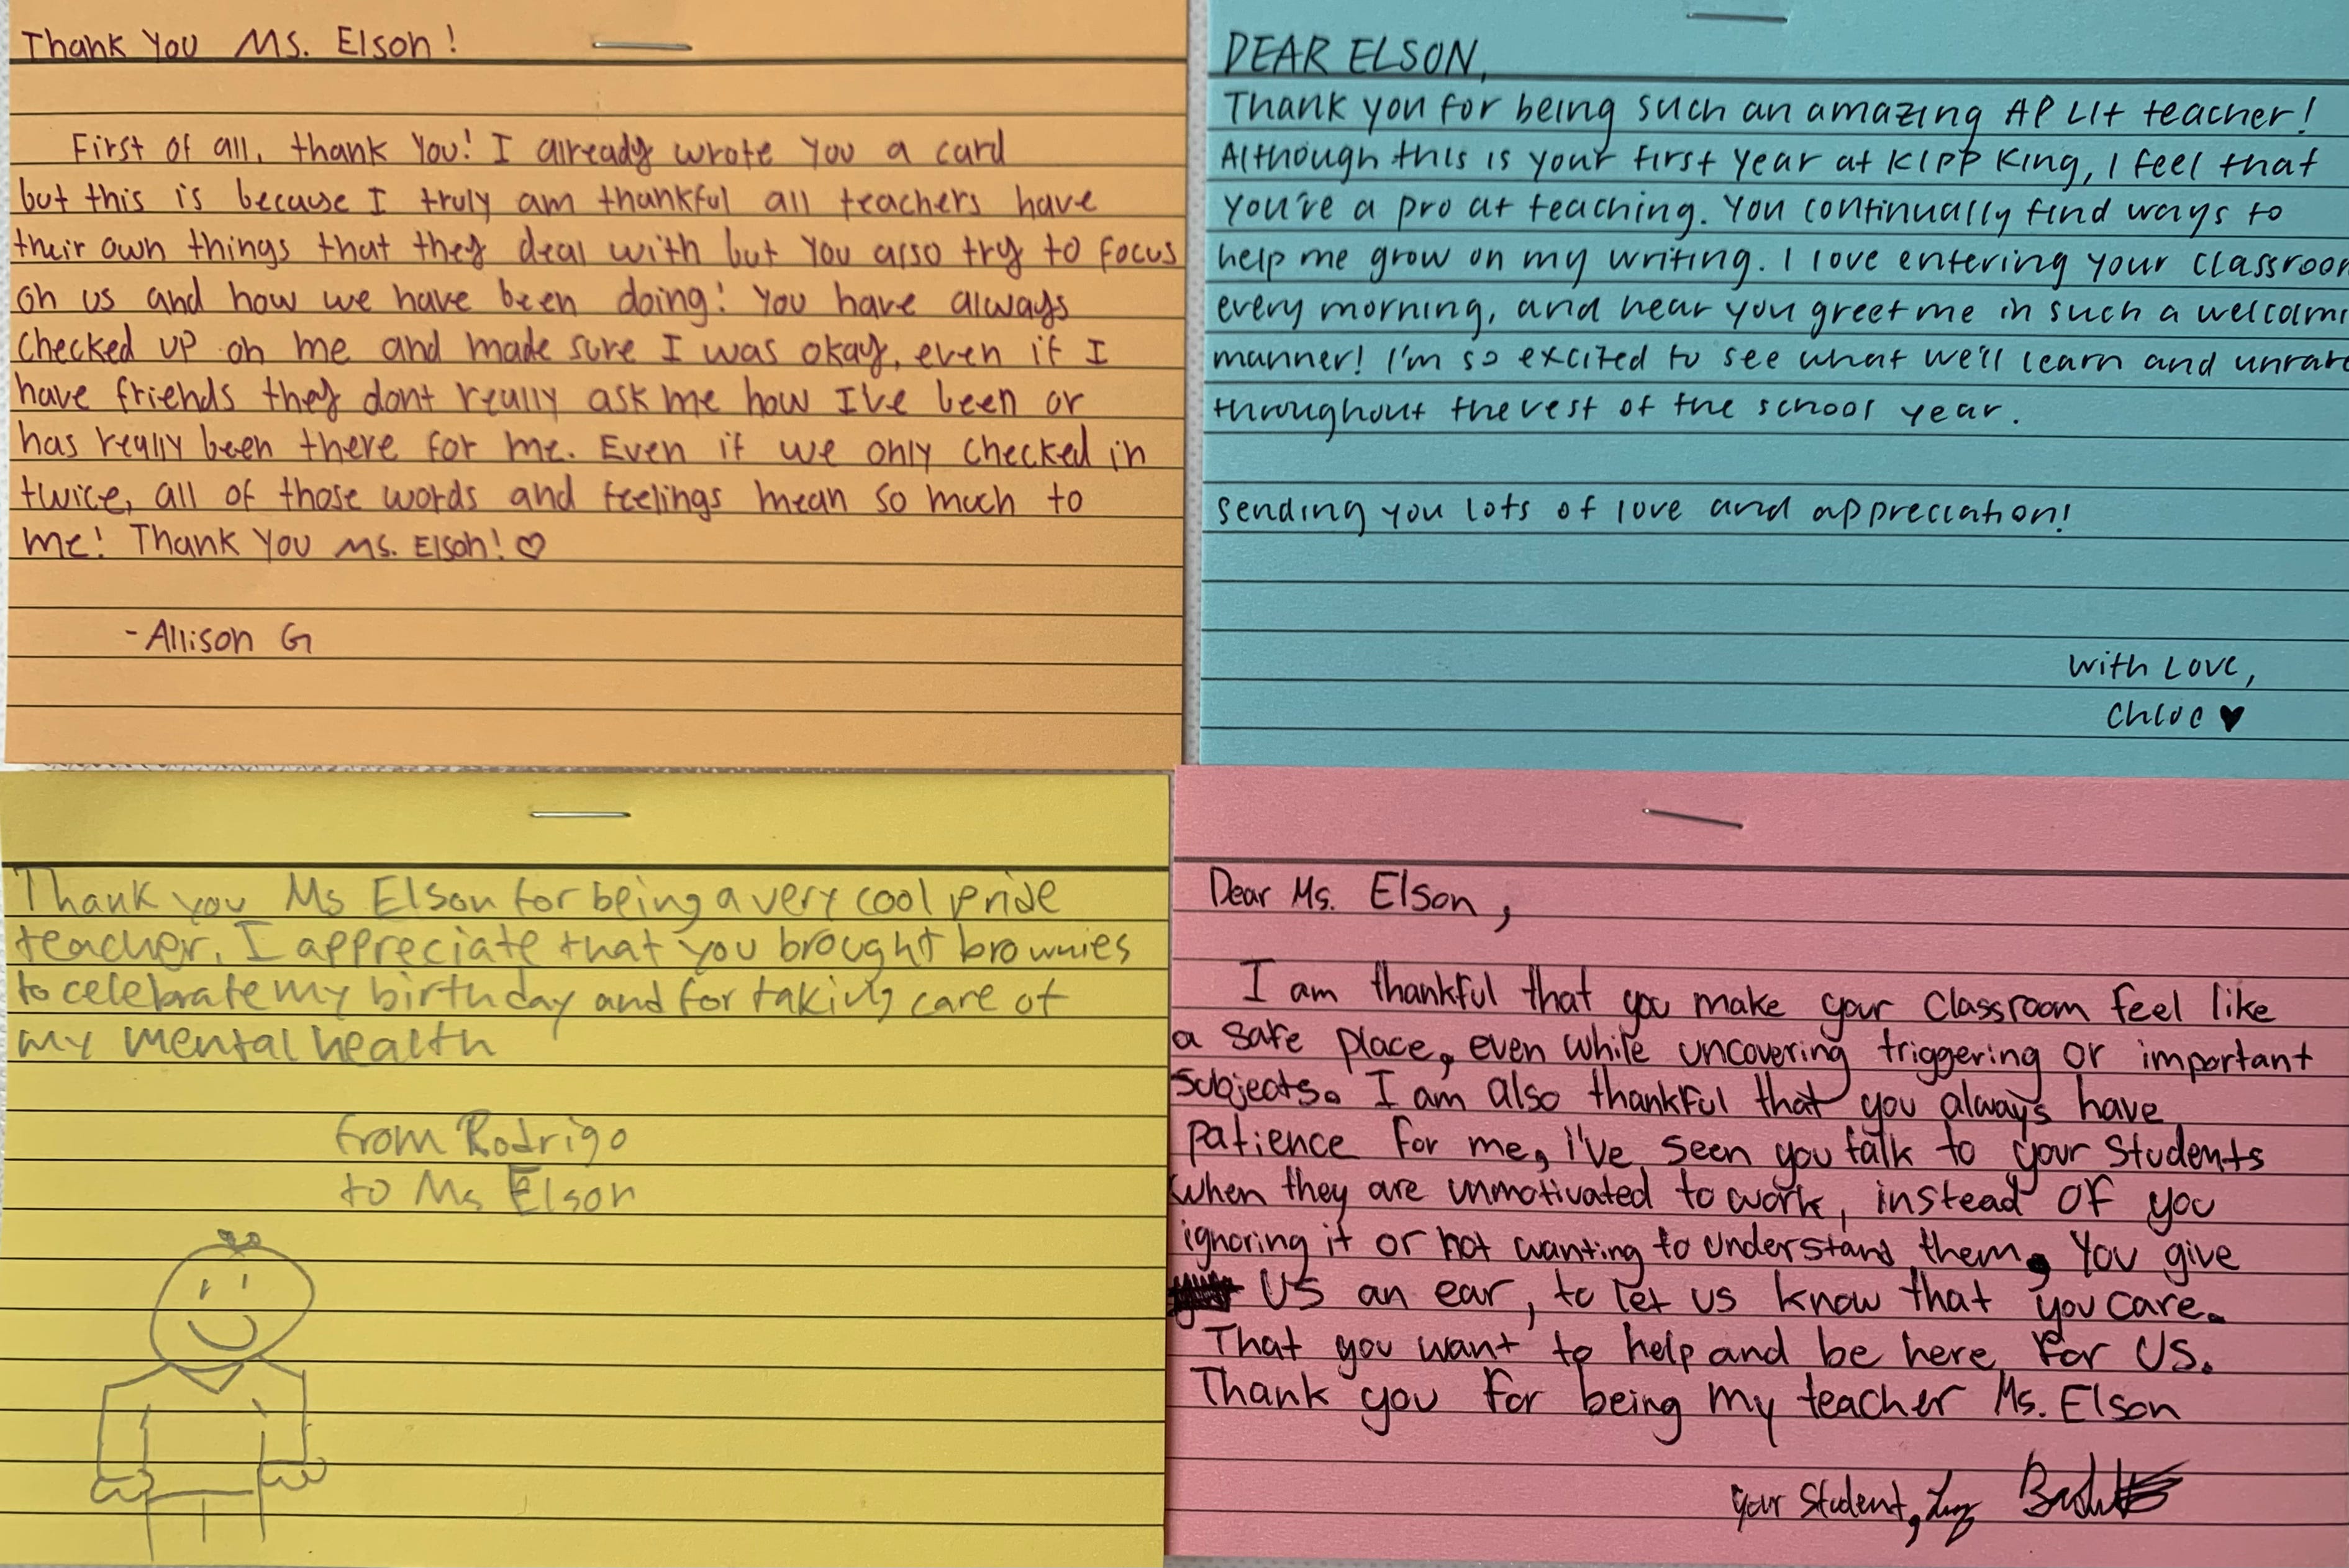 Thank You Ms. Elson!
First of all, thank You! I already wrote you a card
but this is because I truly am thankful all teachers have
their own things that they deal with but you also try to focus
on us and how we have been doing! You have always
checked up on me and made sure I was okay, even if I
have friends they dont really ask me how I've been or
has really been there for me. Even if we only checked in
twice, all of those words and feelings mean so much to
me! Thank You Ms. Elson! ♡
- Allison G
DEAR ELSON,
Thank you for being such an amazing AP Lit teacher!
Although this is your first year at KIPP King, I feel that
you're a pro at teaching. You continually find ways to
help me grow on my writing. I love entering your classroo
every morning, and hear you greet me in such a welcomi
manner! I'm so excited to see what we'll learn and
throughout the rest of the school year.
sending you lots of love and appreciation!
with Love,
Chloe ♥
Thank you Ms Elson for being a very cool pride
teacher. I appreciate that you brought brownies
to celebrate my birthday and for taking care of
my mental health
from Rodrigo
to Ms Elson
Dear Ms. Elson,
I am thankful that you make your classroom feel like
a safe place, even while uncovering triggering or important
subjects. I am also thankful that you always have
patience for me, i've seen you talk to your students
when they are unmotivated to work, instead of you
ignoring it or not wanting to understand them, You give
us an ear, to let us know that you care.
That you want to help and be here for us.
Thank you for being my teacher Ms. Elson
your student,